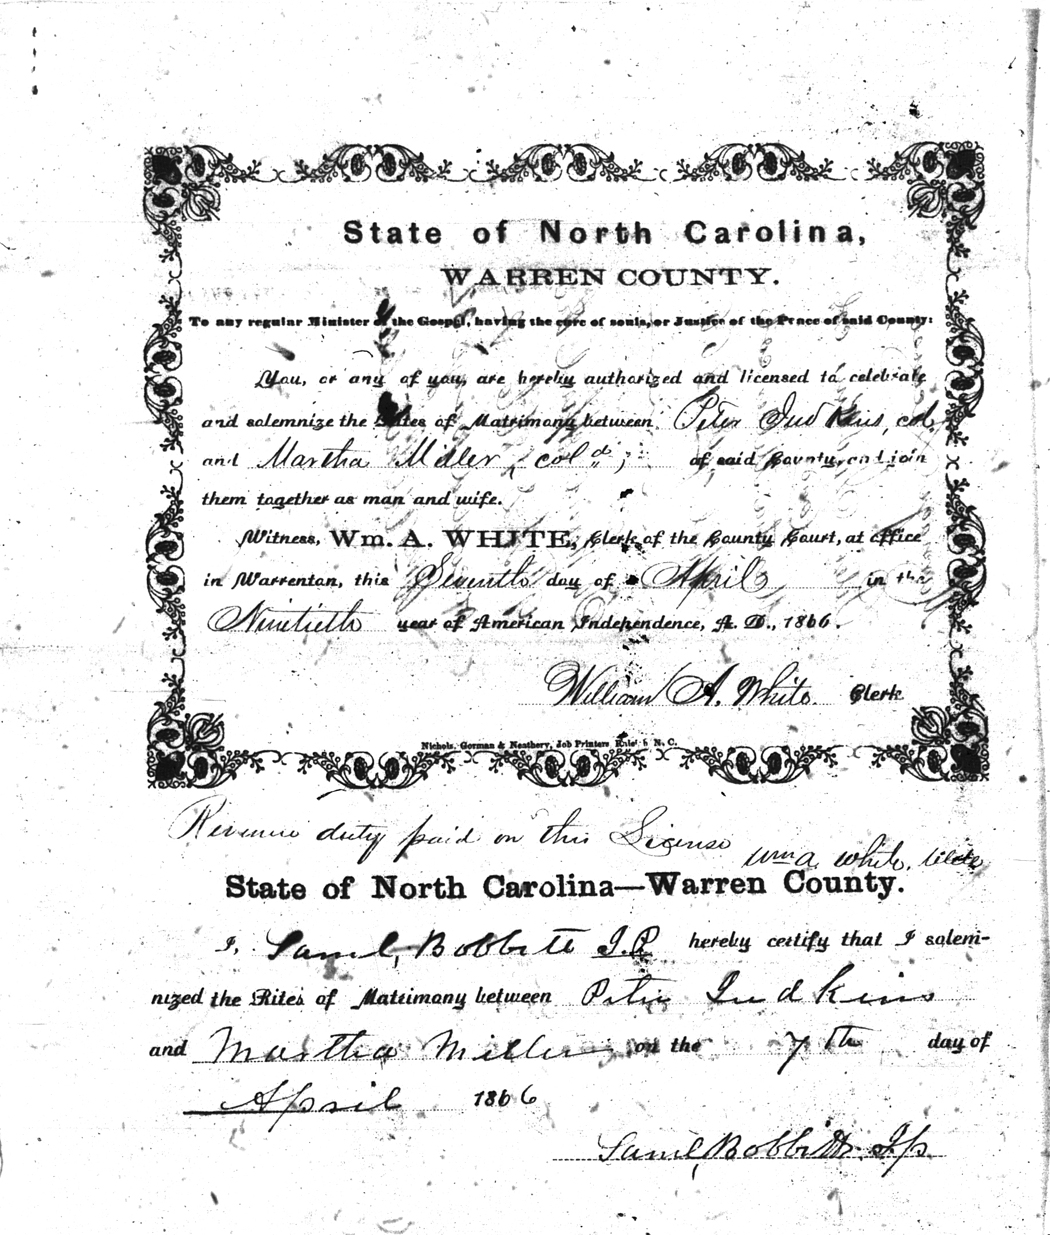 State of North Carolina,
WARREN COUNTY.
To any regular Minister of the Gospel, having the cure of souls, or Justice of the Peace of said County:
You, or any of you, are hereby authorized and licensed to celebrate
and solemnize the Rites of Matrimony between Peter Judkins, col
and Martha Miller, cold, of said County, and join
them together as man and wife.
Witness, Wm. A. WHITE, Clerk of the County Court, at office
in Warrenton, this Seventh day of April in the
Ninetieth year of American Independence, A. D., 1866.
William A. White Clerk
Nichols, Gorman & Neathery, Job Printers Raleigh N. C.
Revenue duty paid on this License
Wm A. White, Clerk
State of North Carolina—Warren County.
I, Saml, Bobbitt J.P. hereby certify that I solem-
nized the Rites of Matrimony between Peter Judkins
and Martha Miller on the 7th day of
April 1866
Saml, Bobbitt Jp